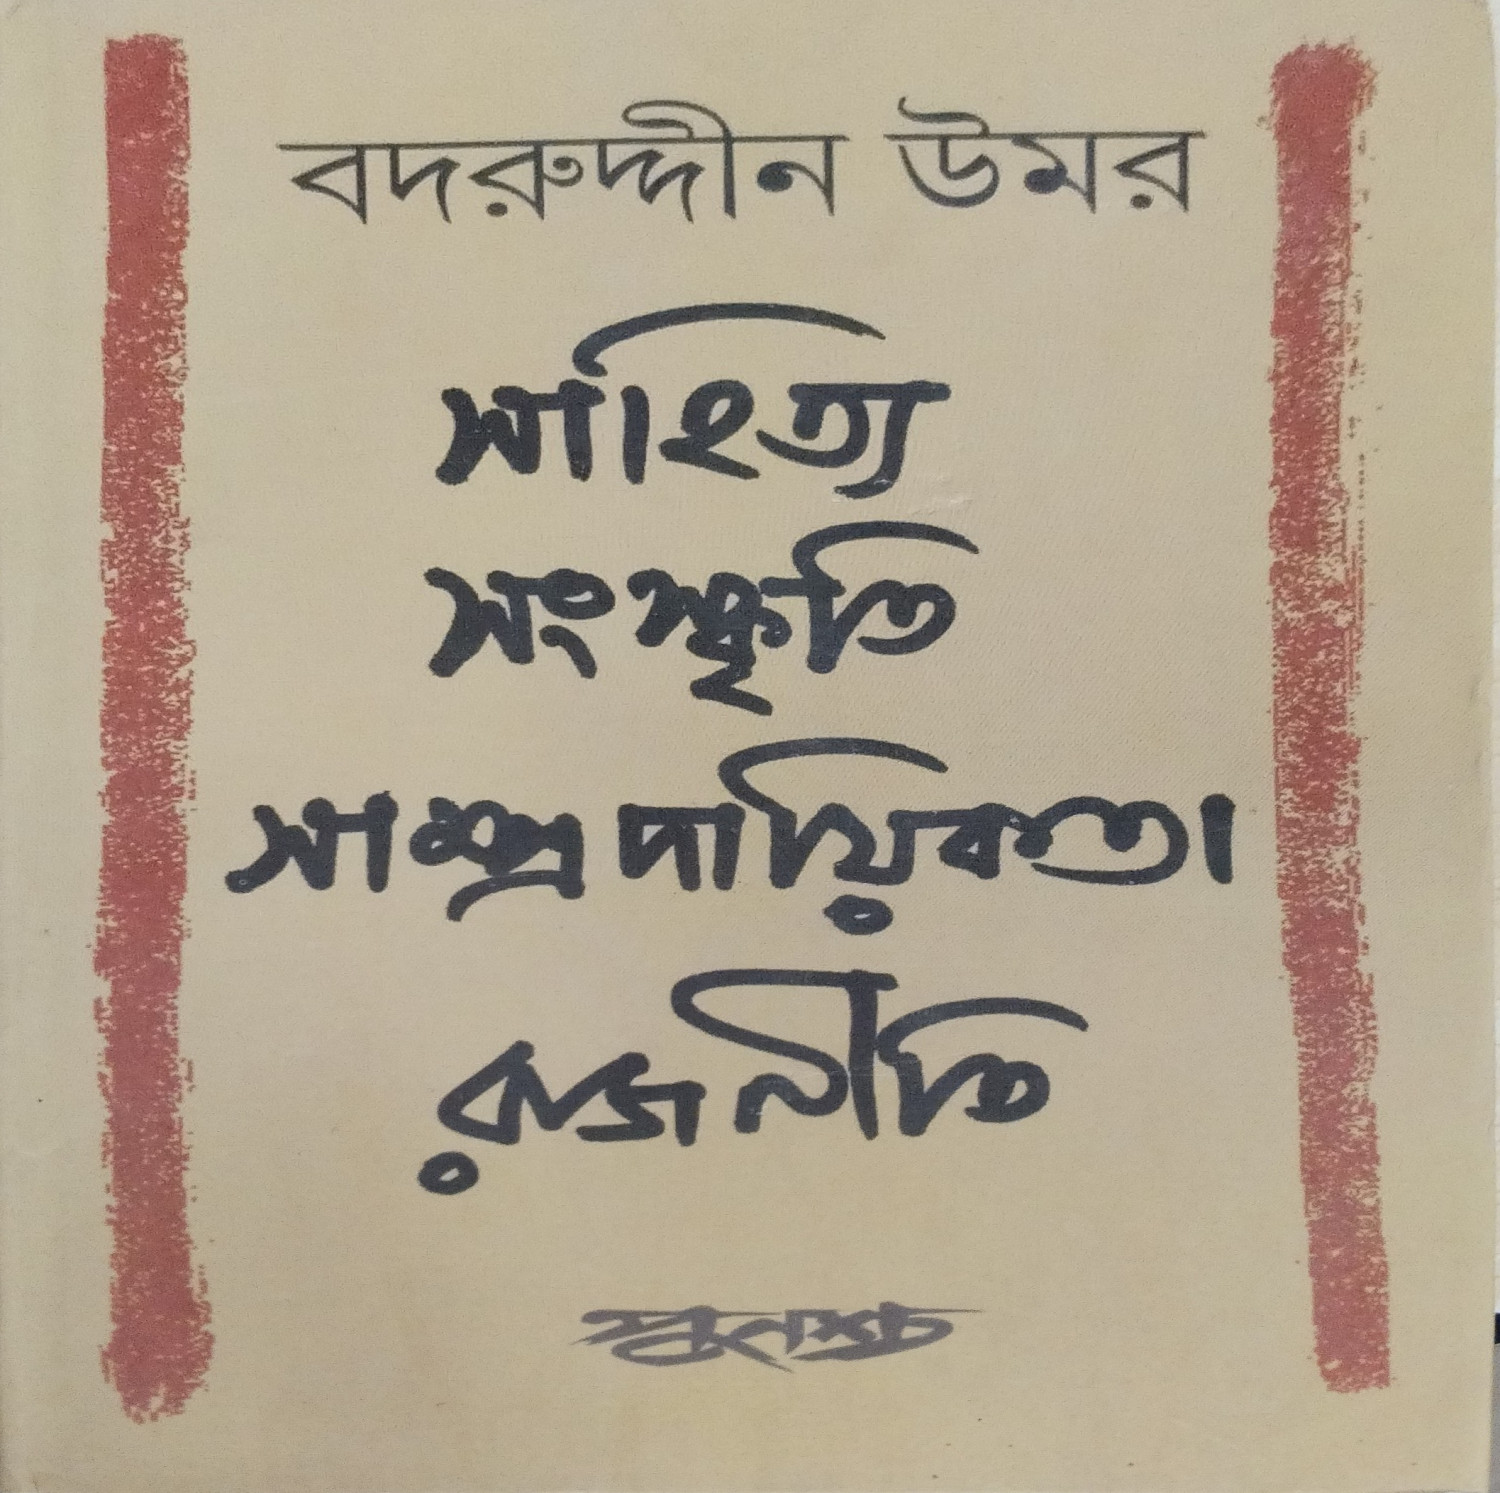 বদরুদ্দীন উমর
সাহিত্য
সংস্কৃতি
সাম্প্রদায়িকতা
রাজনীতি
পুনশ্চ